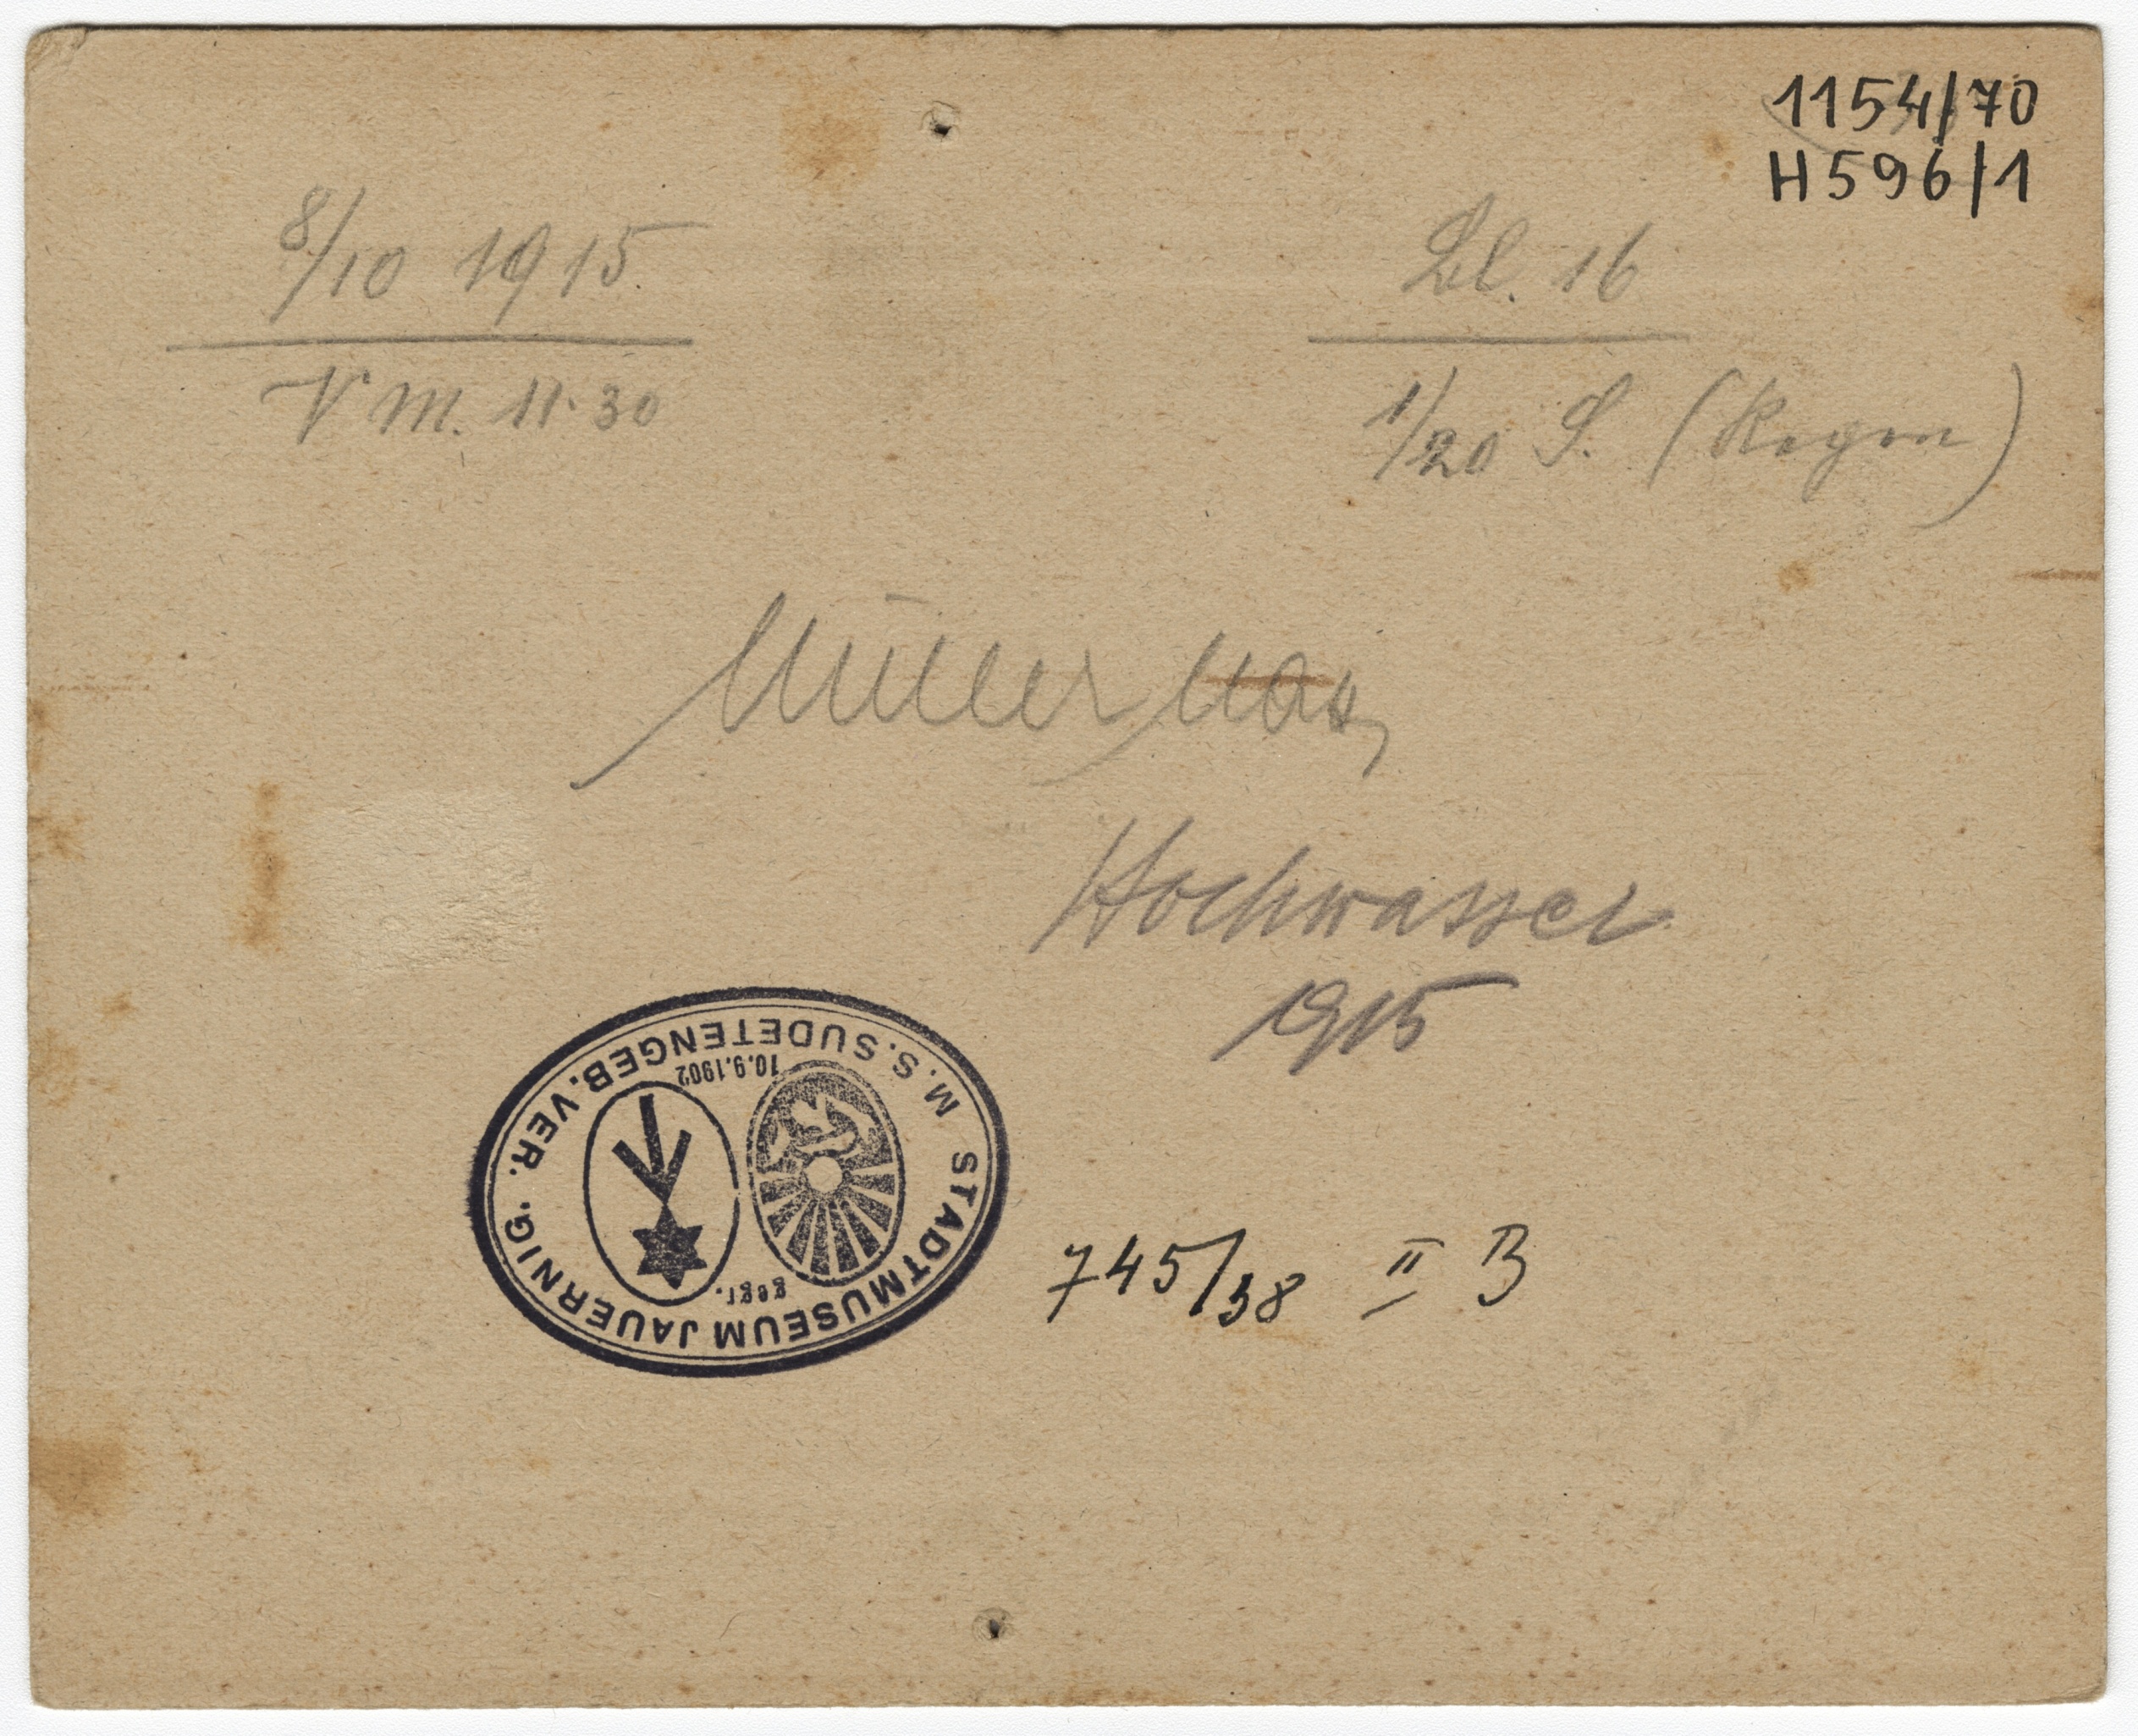 1154/70
H596/1
8/10 1915
Bl. 16
V M. 11.30
1/20 S. (Regen)
Müller Max
Hochwasser
1915
M. S. SUDETENGEB. VER.
10.9.1902
gegr.
STADTMUSEUM JAUERNIG.
745/38 II B